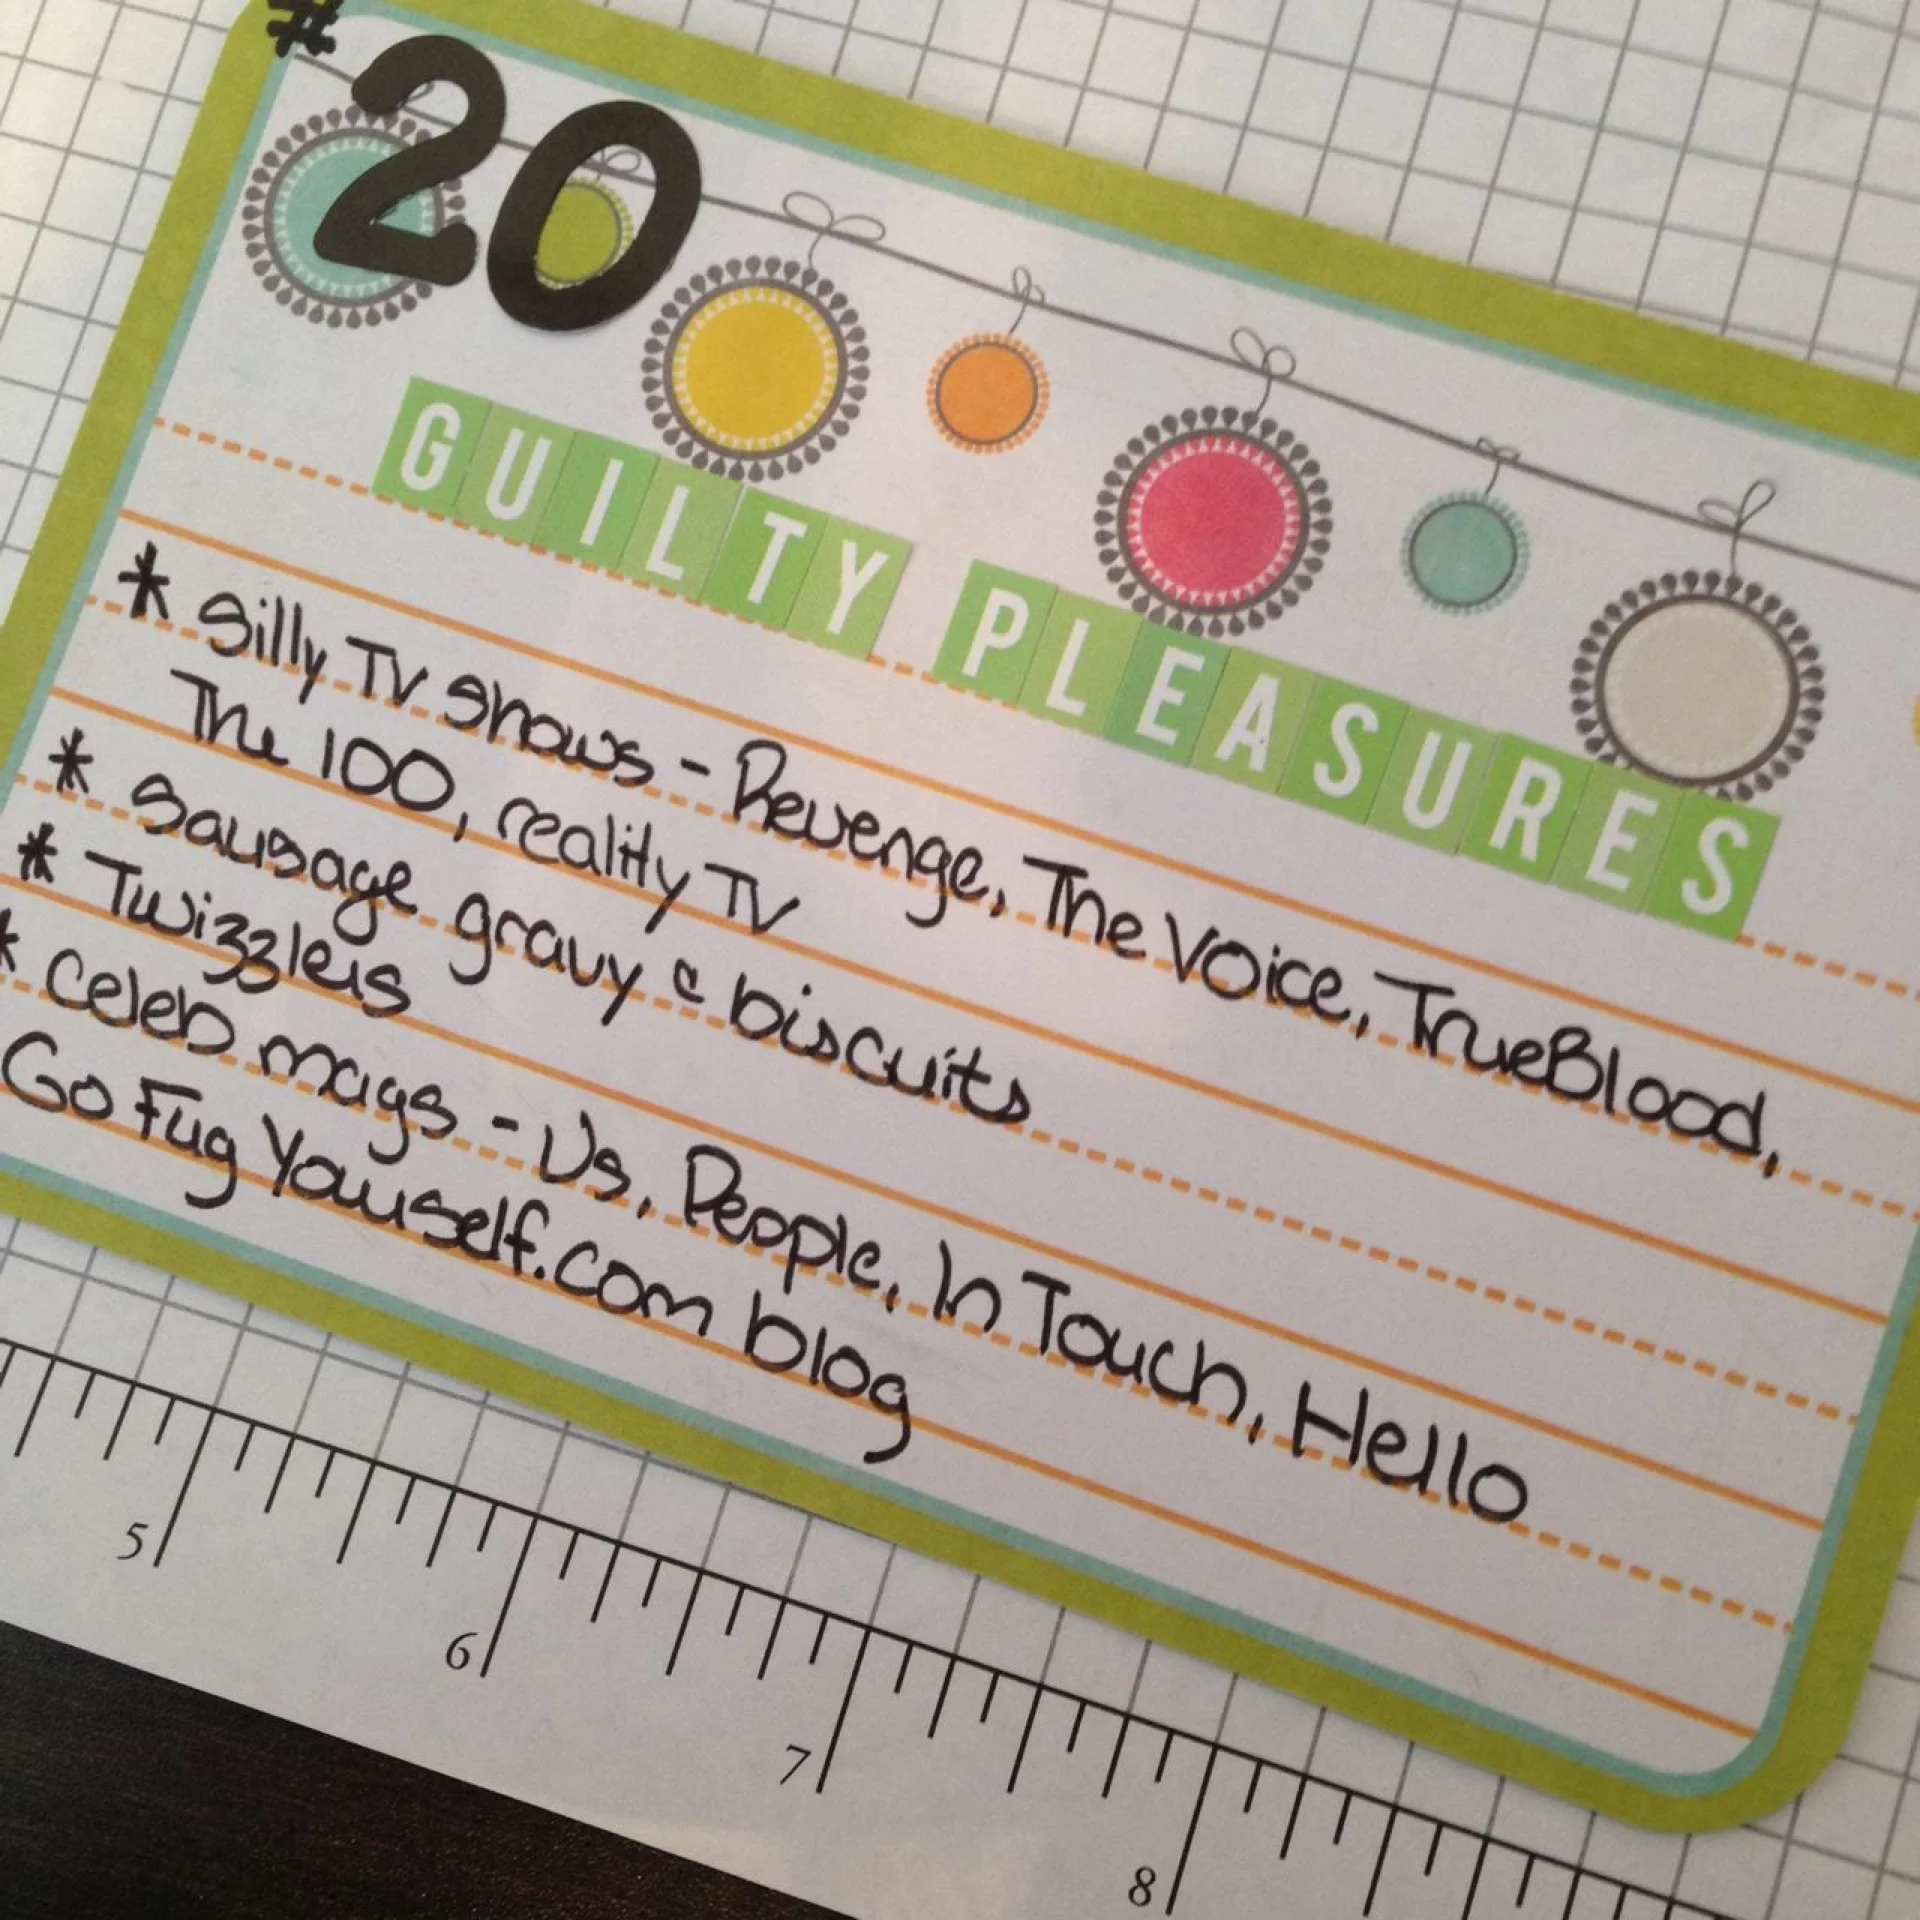 #20
GUILTY PLEASURES
* Silly TV shows - Revenge, The Voice, TrueBlood,
The 100, reality TV
* Sausage gravy & biscuits
* Twizzlers
* Celeb mags - Us, People, In Touch, Hello
Go Fug Yourself.com blog
5 6 7 8